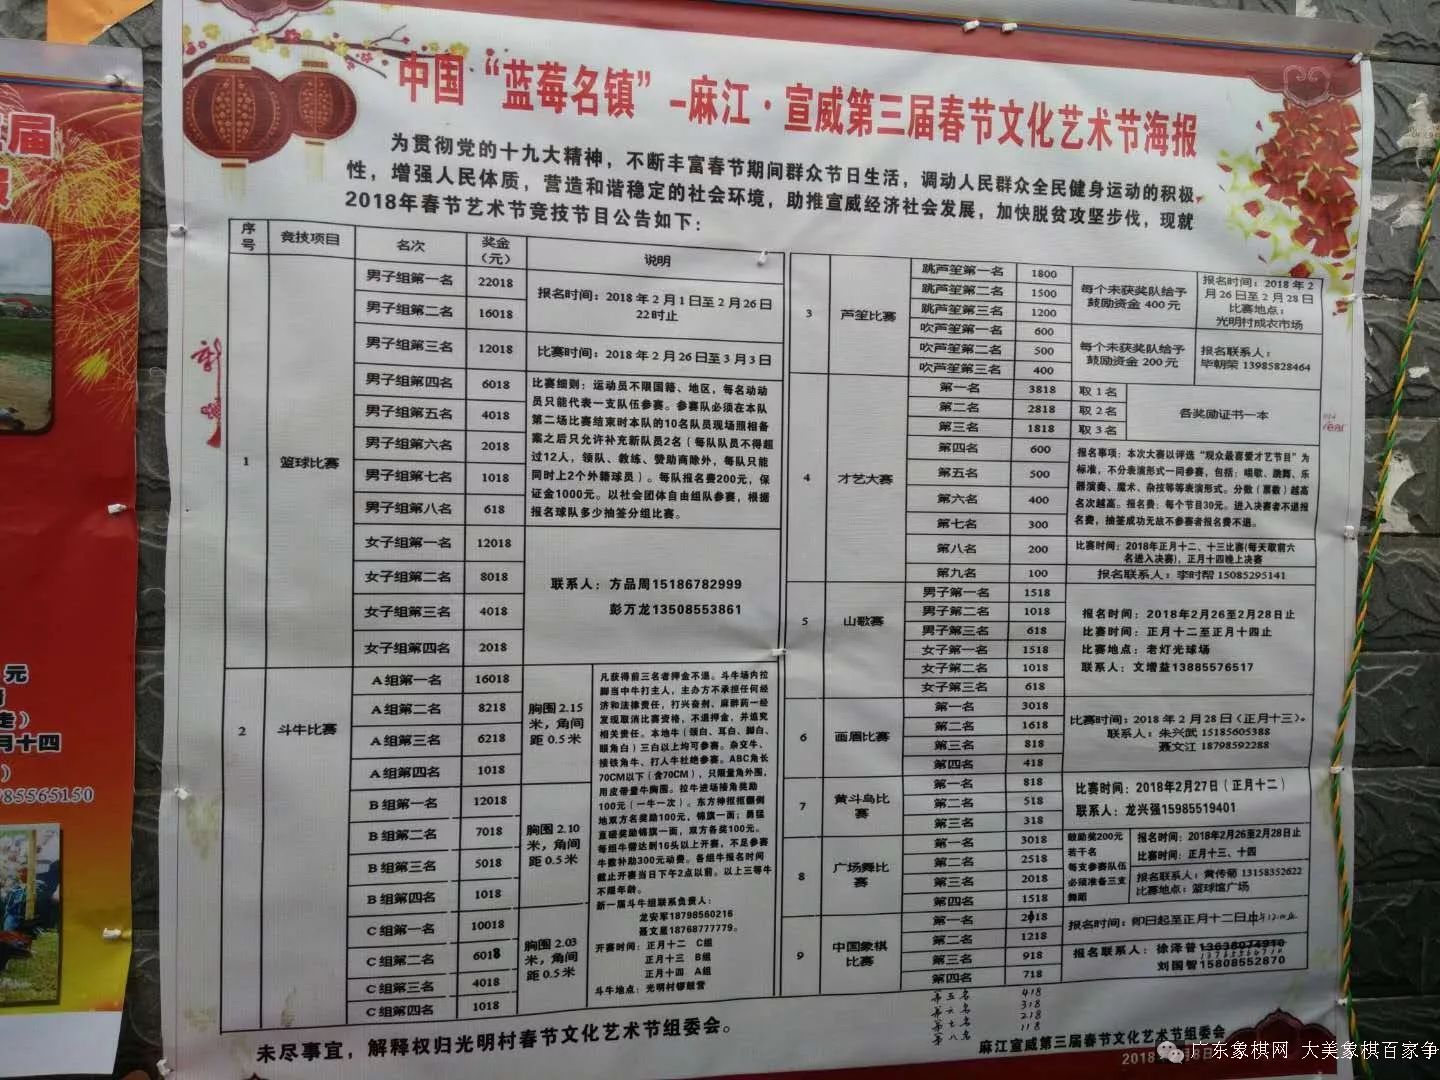 中国“蓝莓名镇”-麻江·宣威第三届春节文化艺术节海报
为贯彻党的十九大精神，不断丰富春节期间群众节日生活，调动人民群众全民健身运动的积极
性，增强人民体质，营造和谐稳定的社会环境，助推宣威经济社会发展，加快脱贫攻坚步伐，现就
2018年春节艺术节竞技节目公告如下：
序号 竞技项目 名次 奖金（元） 说明
1 篮球比赛
男子组第一名 22018
男子组第二名 16018
男子组第三名 12018
男子组第四名 6018
男子组第五名 4018
男子组第六名 2018
男子组第七名 1018
男子组第八名 618
女子组第一名 12018
女子组第二名 8018
女子组第三名 4018
女子组第四名 2018
报名时间：2018年2月1日至2月26日
22时止
比赛时间：2018年2月26日至3月3日
比赛细则：运动员不限国籍、地区，每名动动
员只能代表一支队伍参赛。参赛队必须在本队
第二场比赛结束时本队的10名队员现场照相备
案之后只允许补充新队员2名（每队队员不得超
过12人，领队、教练、赞助商除外，每队只能
同时上2个外籍球员）。每队报名费200元，保
证金1000元。以社会团体自由组队参赛，根据
报名球队多少抽签分组比赛。
联系人：方品周15186782999
彭万龙13508553861
2 斗牛比赛
A组第一名 16018
A组第二名 8218
A组第三名 6218
A组第四名 1018
胸围2.15
米，角间
距0.5米
B组第一名 12018
B组第二名 7018
B组第三名 5018
B组第四名 1018
胸围2.10
米，角间
距0.5米
C组第一名 10018
C组第二名 6018
C组第三名 4018
C组第四名 1018
胸围2.03
米，角间
距0.5米
凡获得前三名者押金不退。斗牛场内拉
脚当中牛打主人，主办方不承担任何经
济和法律责任，打兴奋剂、麻醉药一经
发现取消比赛资格，不退押金，并追究
相关责任。本地牛（颈白、耳白、脚白、
眼角白）三白以上均可参赛。杂交牛、
接铁角牛、打人牛杜绝参赛。ABC角长
70CM以下（含70CM），只限量角外围，
用皮带量牛胸围。拉牛进场接角奖励
100元（一牛一次）。东方神抠抠翻倒
地双方名奖励100元，锦旗一面；勇猛
直碰奖励锦旗一面，双方各奖100元。
每组牛需达到16头以上开赛，不足参赛
牛数补助300元动费。各组牛报名时间
截止开赛当日下午2点以前。以上三等牛
不限年龄。
新一届斗牛组联系负责人：
龙安军18798560216
聂文星18768777779。
开赛时间：正月十二 C组
正月十三 B组
正月十四 A组
斗牛地点：光明村锣鼓营
3 芦笙比赛
跳芦笙第一名 1800
跳芦笙第二名 1500
跳芦笙第三名 1200
吹芦笙第一名 600
吹芦笙第二名 500
吹芦笙第三名 400
每个未获奖队给予
鼓励资金400元
每个未获奖队给予
鼓励资金200元
报名时间：2018年2
月26日至2月28日
比赛地点：
光明村成衣市场
报名联系人：
毕朝荣 13985828464
4 才艺大赛
第一名 3818 取1名
第二名 2818 取2名
第三名 1818 取3名
各奖励证书一本
第四名 600
第五名 500
第六名 400
第七名 300
第八名 200
第九名 100
报名事项：本次大赛以评选“观众最喜爱才艺节目”为
标准，不分表演形式一同参赛，包括：唱歌、跳舞、乐
器演奏、魔术、杂技等等表演形式。分数（票数）越高
名次越高。报名费：每个节目30元。进入决赛者不退报
名费，抽签成功无故不参赛者报名费不退。
比赛时间：2018年正月十二、十三比赛(每天取前六
名进入决赛)，正月十四晚上决赛
报名联系人：李时帮 15085295141
5 山歌赛
男子第一名 1518
男子第二名 1018
男子第三名 618
女子第一名 1518
女子第二名 1018
女子第三名 618
报名时间：2018年2月26至2月28日止
比赛时间：正月十二至正月十四止
比赛地点：老灯光球场
联系人：文增益13885576517
6 画眉比赛
第一名 3018
第二名 1618
第三名 818
第四名 418
比赛时间：2018年2月28日（正月十三）。
联系人：朱兴武 15185605388
聂文江 18798592288
7 黄斗鸟比赛
第一名 818
第二名 518
第三名 318
比赛时间：2018年2月27日（正月十二）
联系人：龙兴强15985519401
8 广场舞比赛
第一名 3018
第二名 2518
第三名 2018
第四名 1518
鼓励奖200元
若干名
每支参赛队伍
必须准备三支
舞蹈
报名时间：2018年2月26至2月28日止
比赛时间：正月十三、十四
报名联系人：黄传菊 13158352622
比赛地点：篮球馆广场
9 中国象棋比赛
第一名 2018
第二名 1218
第三名 918
第四名 718
第五名 418
第六名 318
第七名 218
第八名 118
报名时间：即日起至正月十二日
报名联系人：徐泽普13638074910
刘国智15808552870
未尽事宜，解释权归光明村春节文化艺术节组委会。
麻江宣威第三届春节文化艺术节组委会
2018
届
元
月十四
85565150
广东象棋网 大美象棋百家争